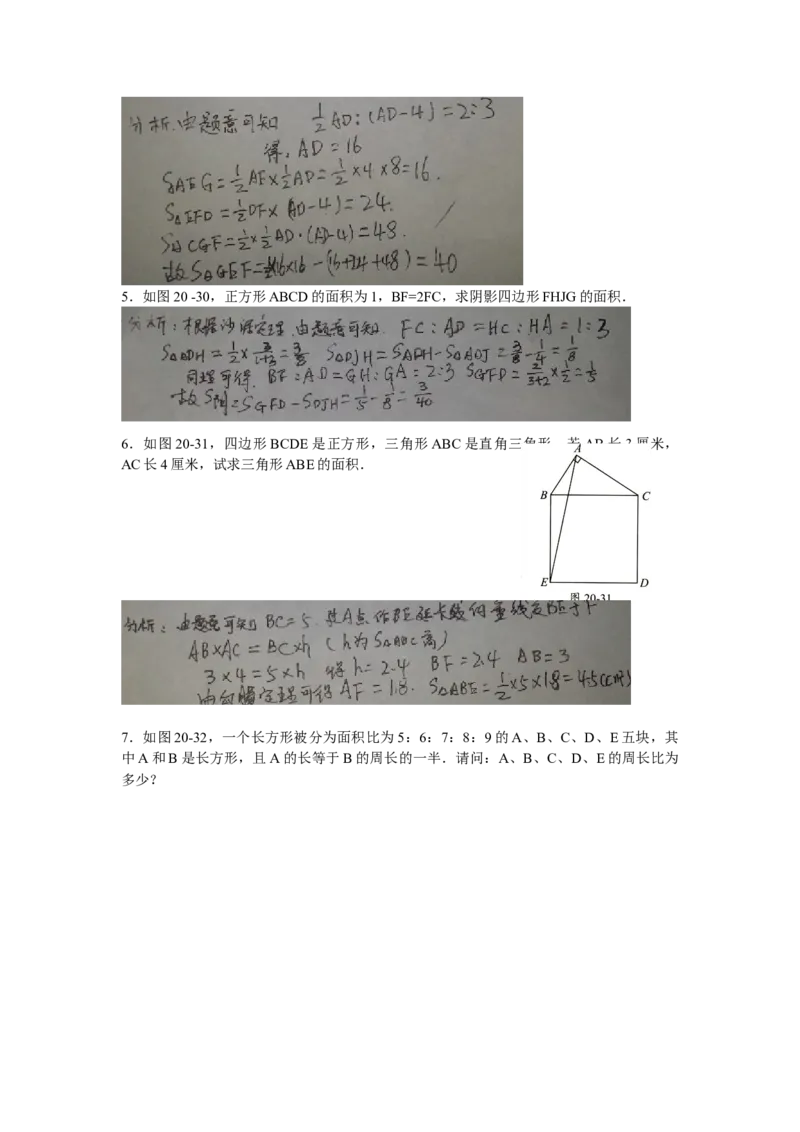 分析:由题意可知 ½AD:(AD-4)=2:3
得,AD=16
S△AEG=½AE×½AD=½×4×8=16.
S△EFD=½DF×(AD-4)=24.
S△CGF=½×½AD·(AD-4)=48.
故S△GEF=16×16-(16+24+48)=40
5．如图20-30，正方形ABCD的面积为1，BF=2FC，求阴影四边形FHJG的面积．
分析:根据沙漏定理,由题意可知. FC:AD=HC:HA=1:3
S△ADH=½×3/(1+3)=3/8 S△DJH=S△ADH-S△ADJ=3/8-1/4=1/8
同理可得. BF:AD=GH:GA=2:3 SGFD=2/(3+2)×½=1/5
故S阴=SGFD-SDJH=1/5-1/8=3/40
6．如图20-31，四边形BCDE是正方形，三角形ABC是直角三角形．若AB长3厘米，
AC长4厘米，试求三角形ABE的面积．
A
B C
E D
图20-31
分析:由题意可知BC=5.过A点作BE延长线的垂线交BE于F
AB×AC=BC×h (h为S△ABC高)
3×4=5×h 得h=2.4 BF=2.4 AB=3
由勾股定理可得AF=1.8. S△ABE=½×5×1.8=4.5(cm²)
7．如图20-32，一个长方形被分为面积比为5：6：7：8：9的A、B、C、D、E五块，其
中A和B是长方形，且A的长等于B的周长的一半．请问：A、B、C、D、E的周长比为
多少?